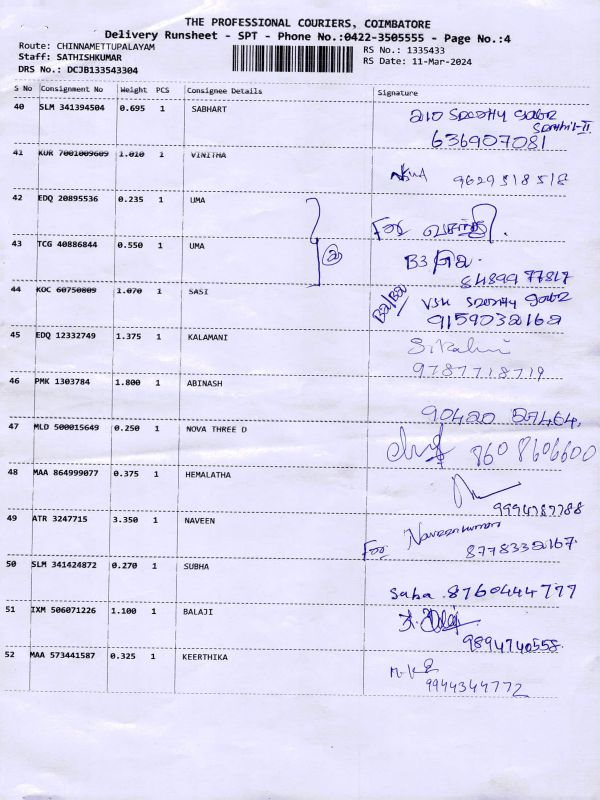 THE PROFESSIONAL COURIERS, COIMBATORE
Delivery Runsheet - SPT - Phone No.:0422-3505555 - Page No.:4
Route: CHINNAMETTUPALAYAM
Staff: SATHISHKUMAR
DRS No.: DCJB133543304
RS No.: 1335433
RS Date: 11-Mar-2024
S No Consignment No Weight PCS Consignee Details Signature
40 SLM 341394504 0.695 1 SABHART
636907081
41 KUR 7001009609 1.010 1 VINITHA
9629318518
42 EDQ 20895536 0.235 1 UMA
For வசந்தி.
43 TCG 40886844 0.550 1 UMA
B3
84899 77817
44 KOC 60750809 1.070 1 SASI
VSK
9159032162
45 EDQ 12332749 1.375 1 KALAMANI
9787718719
46 PMK 1303784 1.800 1 ABINASH
90420 27464.
47 MLD 500015649 0.250 1 NOVA THREE D
860 8606600
48 MAA 864999077 0.375 1 HEMALATHA
9994787788
49 ATR 3247715 3.350 1 NAVEEN
For Naveenkumar
8778332167.
50 SLM 341424872 0.270 1 SUBHA
Saba. 8760444777
51 IXM 506071226 1.100 1 BALAJI
9894740558.
52 MAA 573441587 0.325 1 KEERTHIKA
9944344772